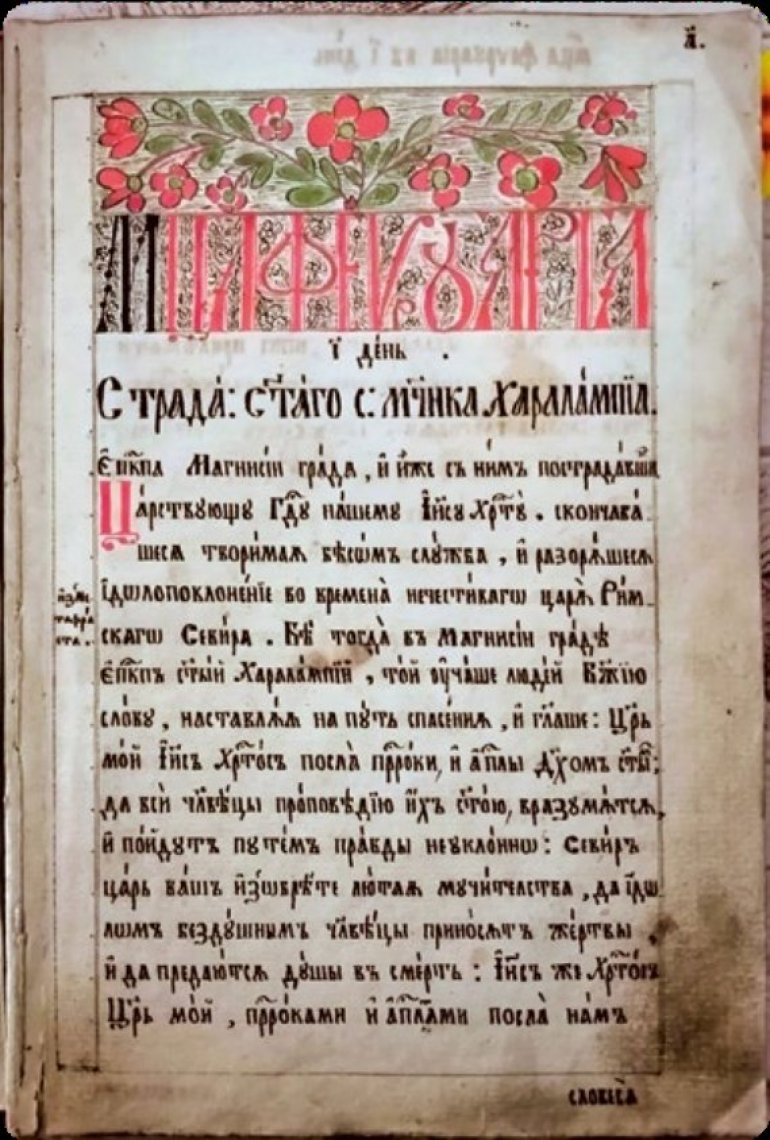 а҃.
МЦА ФЕVРꙊАРІА
і҃ де́нь .
Страда́: ст҃а́го с: мч҃нка Харала́мпїа.
є҆пкⷭ҇па Магнисі́и гра́да, и҆ и҆́же съ ни́мъ пострада́вши
Ца́рствующу Гдⷭ҇у на́шему І҆и҃су Хрⷭ҇ту̀. сконча́ва
шеся твори́маѧ бѣсѡ́мъ слу́жба, и҆ разорѧ́шесѧ
і҆́дѡлопоклоне́нїе во времена̀ нечести́вагѡ царѧ̀ Ри́м-
скагѡ Севи́ра. Бѣ̀ тогда̀ въ Магнисі́и гра́дѣ
є҆пкⷭ҇пъ ст҃ы́й Харала́мпїй, то́й ᲂу҆ча́ше люде́й бж҃їю
сло́ву, наставлѧ́ѧ на пу́ть спасе́нїѧ, и҆ гл҃аше: Цр҃ь
мо́й І҆и҃съ Хрⷭ҇то́съ посла̀ прⷪ҇ро́ки, и҆ а҆пⷭ҇лы дх҃омъ ст҃ы́:
да всѝ чл҃вѣ́цы про́повѣдїю и҆́хъ ст҃о́ю, вразумѧ́тсѧ,
и҆ по́йдутъ путе́мъ пра́вды неукло́ннѡ: Севи́ръ
ца́рь ва́шъ и҆з̾ѡбрѣ́те лю́таѧ мучи́телства, да і҆́дѡ
лѡмъ безду́шнымъ чл҃вѣ́цы прино́сѧтъ же́ртвы,
и҆ да предаю́тсѧ ду́шы въ сме́рть: І҆и҃съ же Хрⷭ҇то́съ
Цр҃ь мо́й, прⷪ҇ро́ками и҆ а҆пⷭ҇лами посла̀ на́мъ
словеса̀